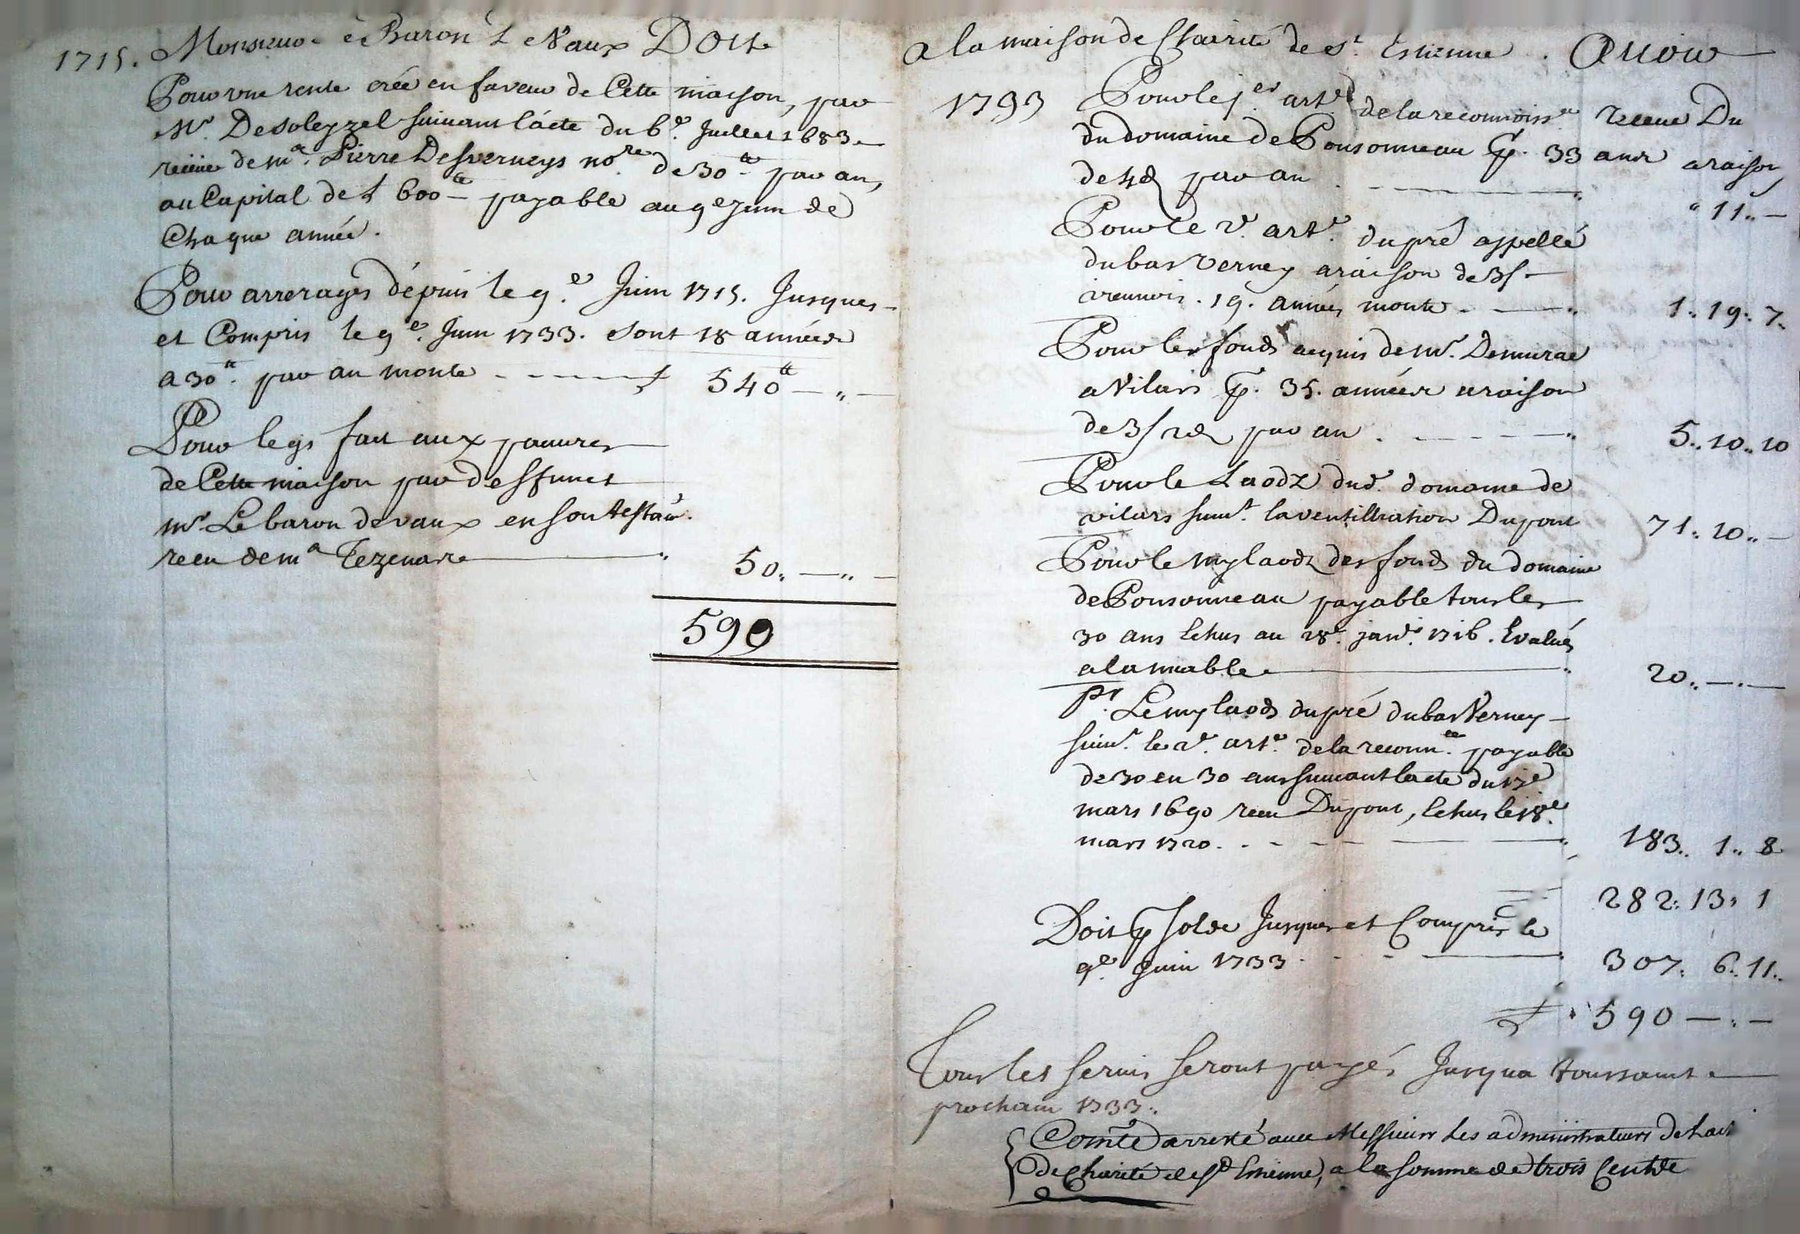 1715. Monsieur Baron Vaux Doit
Pour une rente créé en faveur de Cette maison, par
Mr. Desoleyzel suivant l'acte du 6e. Juillet 1683.
receüe de me. Pierre Desverneys nore. de 30tt par an,
au Capital de 600tt payable au 9e Juin de
Chaque année.
Pour arrerages dépuis le 9e. Juin 1715. Jusques
et Compris le 9e. Juin 1733. sont 18 années
a 30tt. par an monte 540tt — „ —
Pour legs fait aux pauvres
de Cette maison par deffunct
mr. Le baron de vaux en son testam.
receu de me Tezenare 50. — „ —
590
a la maison de Charité de St. Estienne. Avoir
1733 Pour le 1er. arte. de la reconnoiss. receue Du
du domaine de Pousonneau p. 33 ans araison
de 4d par an " 11 „ —
Pour le 2e. arte. du pré appellé
du bas Verney araison de 3s
viennois. 19. années monte 1. 19. 7.
Pour les fonds acquis de mr. Demurae
a Vilars p. 35. années araison
de 3s 2d par an 5. 10. 10
Pour le Laodz dud. domaine de
vilars suivt. la ventillration Dupont 71. 10 „ —
Pour le mylaodz des fonds du domaine
de Pousonneau payable tous les
30 ans Echus au 28e. janvr. 1716. Evalués
a lamiable 20. — . —
pr. Le mylaods du pré du bas Verney
suivt. le 2e. arte. de la reconnce. payable
de 30 en 30 ans suivant lacte du 17e
mars 1690 receu Dupont, Echus le 18e.
mars 1720. 183. 1. 8
282. 13. 1
Doit p solde Jusques et Compris le
9e. Juin 1733 307. 6. 11.
590 — . —
Tous les servis seront payés Jusqua toussaint
prochain 1733.
Comte arresté avec Messieurs Les administrateurs de
de Charité de St Estienne, a la somme de trois Cent